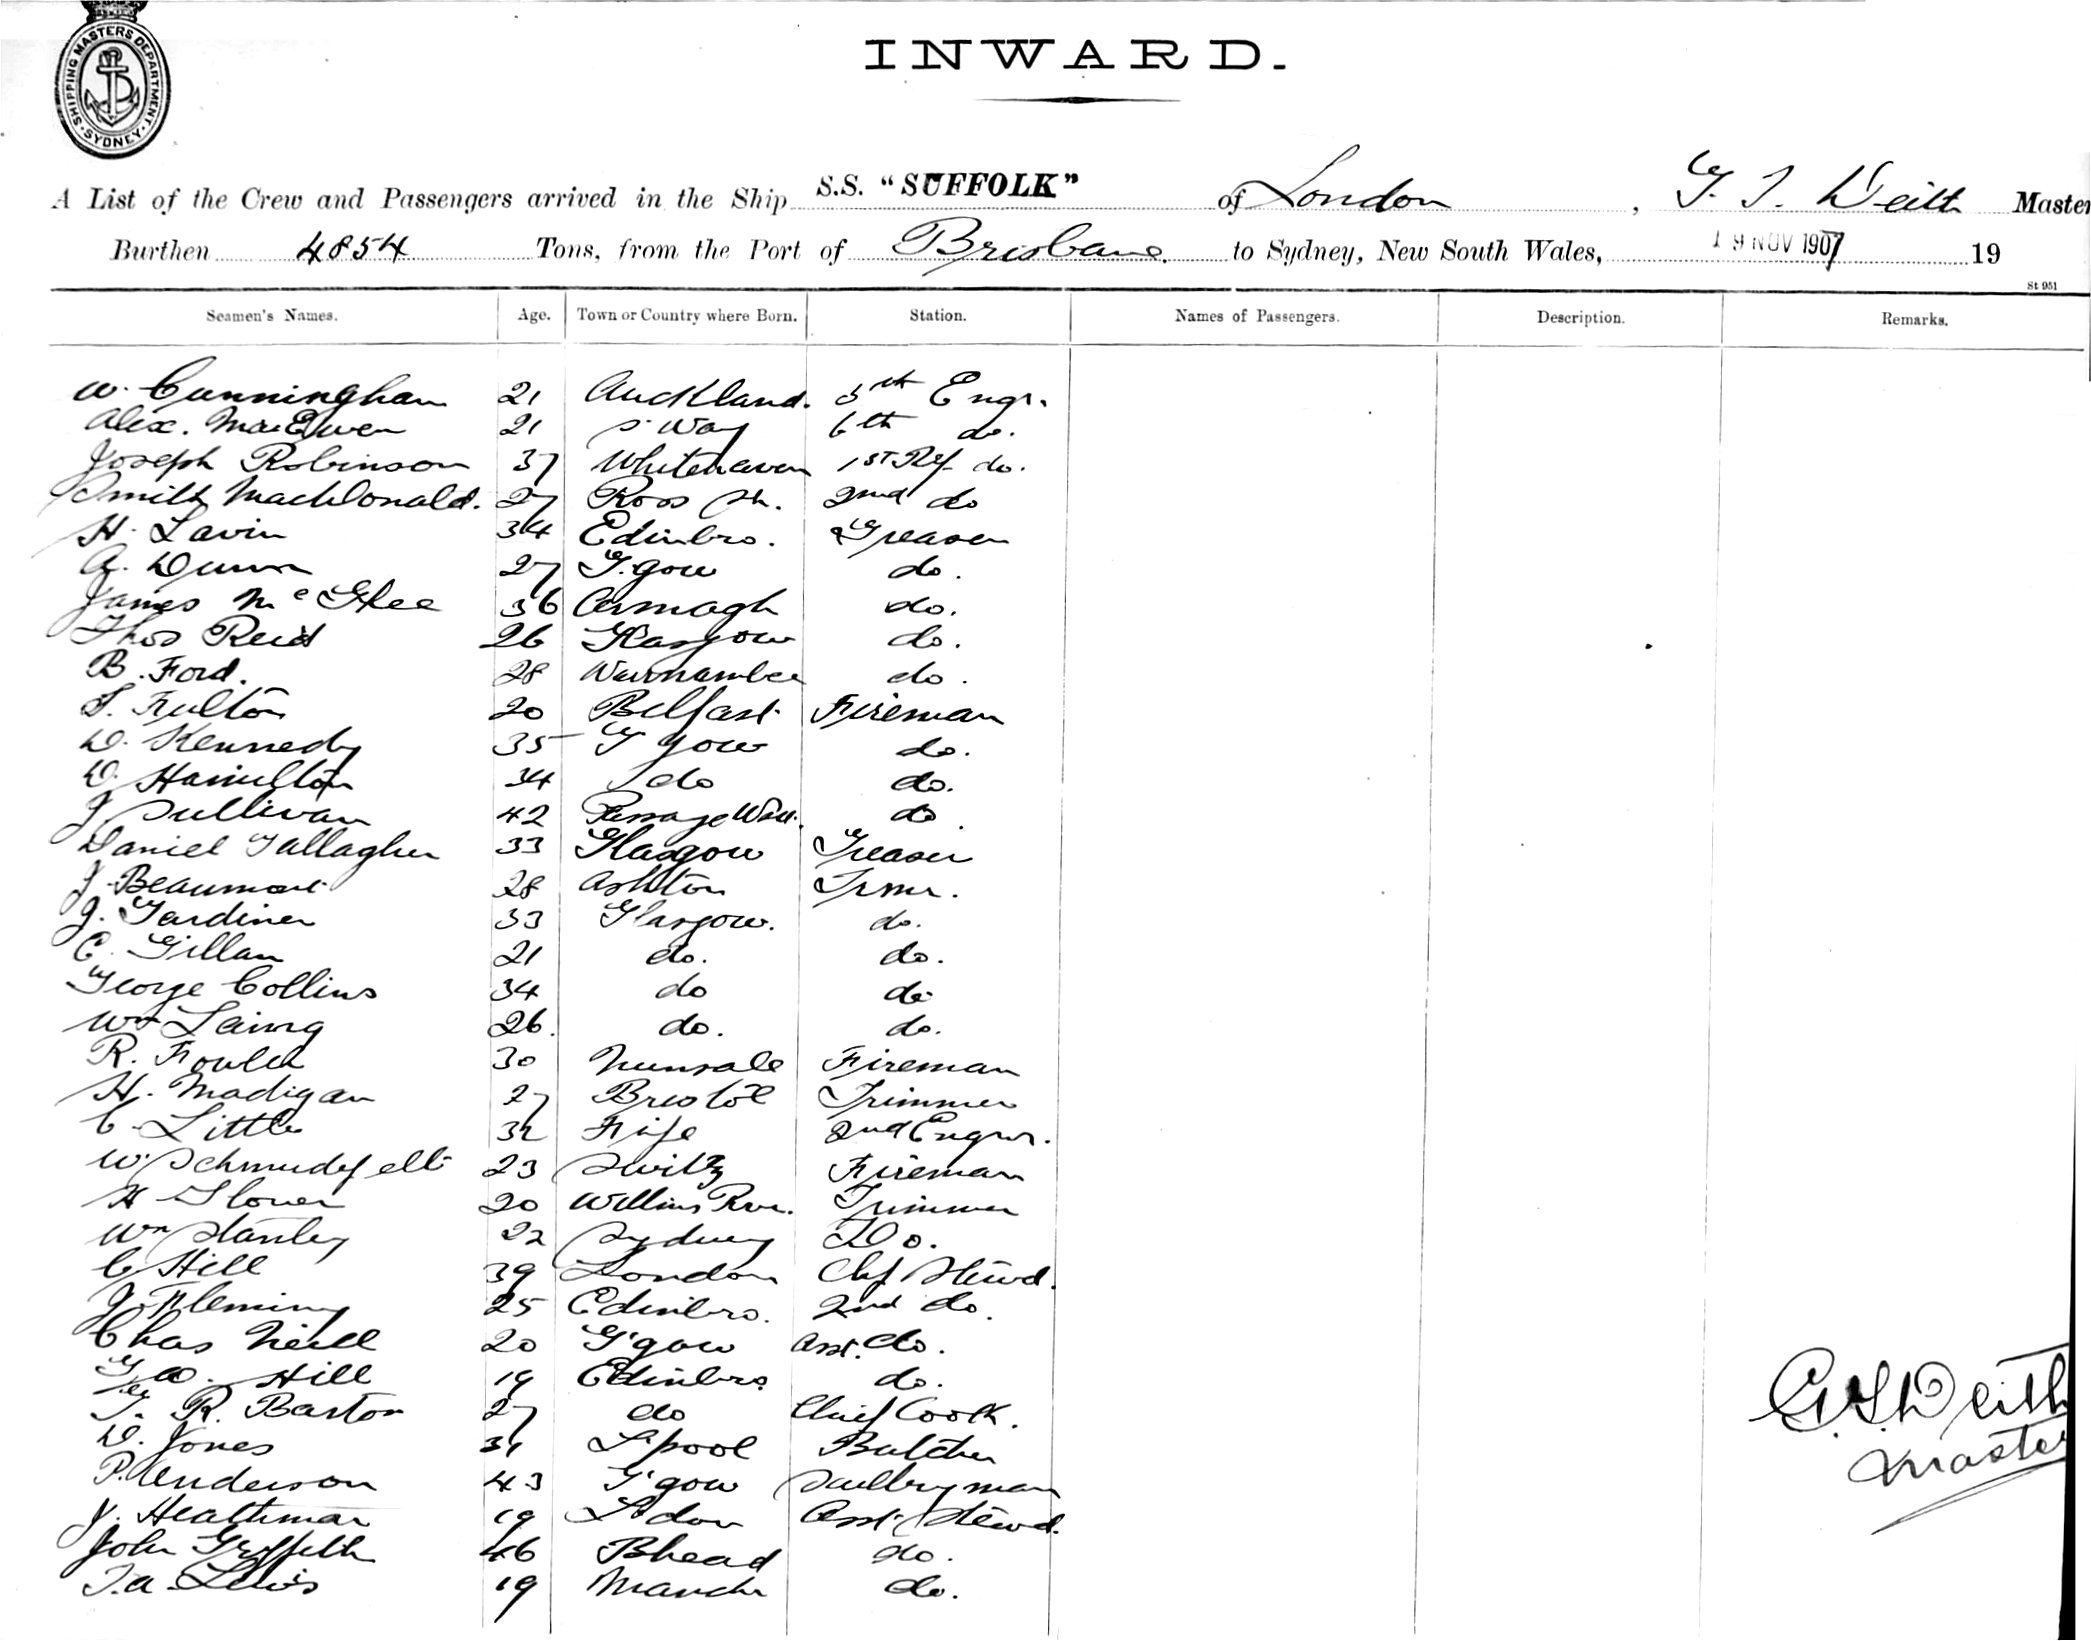 SHIPPING MASTERS DEPARTMENT SYDNEY
INWARD.
A List of the Crew and Passengers arrived in the Ship S.S. "SUFFOLK" of London, G. S. Deith Master
Burthen 4854 Tons, from the Port of Brisbane. to Sydney, New South Wales, 19 NOV 1907 19
St 951
Seamen's Names. Age. Town or Country where Born. Station. Names of Passengers. Description. Remarks.
W. Cunningham 21 Auckland. 5th Engr.
Alex. MacEwen 21 6th do.
Joseph Robinson 37 Whitehaven 1st Ref do.
Smith MacDonald. 27 Ross Sh. 2nd do
H. Lavin 34 Edinbro. Greaser
A. Dunn 27 G.gow do.
James McGhee 36 Armagh do.
Thos Reid 26 Glasgow do.
B. Ford. 28 do.
S. Fulton 20 Belfast Fireman
D. Kennedy 35 G gow do.
D. Hamilton 34 do do.
J Sullivan 42 Passage West. do.
Daniel Gallagher 33 Glasgow Greaser
J. Beaumont 28 Ashton Trmr.
J. Gardiner 33 Glasgow. do.
C. Gillan 21 do. do.
George Collins 34 do do
Wm Laing 26. do. do.
R. Fowler 30 Fireman
H. Madigan 27 Bristol Trimmer
C. Little 32 Fife 2nd Engnr.
W. 23 Switz Fireman
H Glover 20 Trimmer
Wm Stanley 22 Sydney Do.
C Hill 39 London Chf Stewd.
J. Fleming 25 Edinbro. 2nd do.
Chas Neill 20 G'gow Asst. do.
G W. Hill 19 Edinbro. do.
T. R. Barton 27 do Chief Cook.
D. Jones 31 L'pool Butcher
P. Anderson 43 G'gow Scullery man
J. Heathman 19 L'don Asst. Stewd.
John Griffith 46 Bhead do.
T.A. Lewis 19 Manchr do.
G. S. Deith
Master